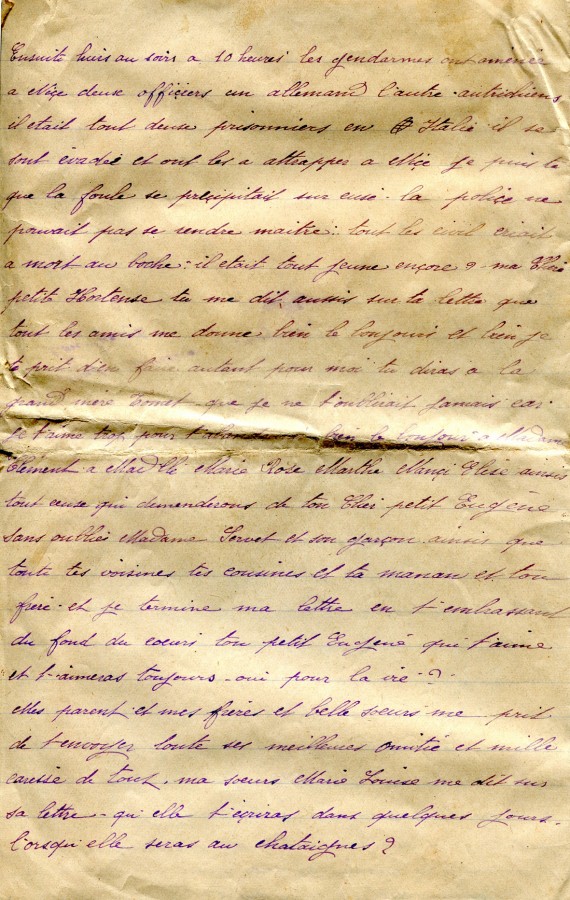 Ensuite hiers au soirs a 10 heures les gendarmes ont amenée
a Niçe deux officiers un allemand l'autre autrichiens
il etait tout deuse prisonniers en Italie il se
sont évadée et ont les a attrapper a Niçe je puis te
que la foule se preçipitait sur euse. la poliçe ne
pouvait pas se rendre maitre: tout les civil criait
a mort au boche: il etait tout jeune ençore 9 ma Cheri
petite Hortense tu me dit aussis sur ta lettre que
tout les amis me donne bien le bonjours et bien je
te prit d'en faire autant pour moi tu diras a la
grand mère que je ne t'oubliait jamais car
je t'aime trop pour bien le bonjour a Madame
Clément a Marie Rose Marthe Elise ainsis
tout ceuse qui demenderons de ton Cher petit Eugéne.
sans oubliée Madame Servet et son garçon ainsis que
toute tes voisines tes cousines et ta maman et ton
frère et je termine ma lettre en t'embrassant
du fond du coeurs ton petit Eugené qui t'aime
et t-aimeras toujours - oui pour la vie?
Mes parent et mes frères et belle soeurs me prit
de t'envoyer toute ses meilleures amitié et mille
caresse de tout. ma soeurs Marie Louise me dit sur
sa lettre - qui elle t'eçriras dans quelques jours.
l'orsqu'elle seras au chataignes?